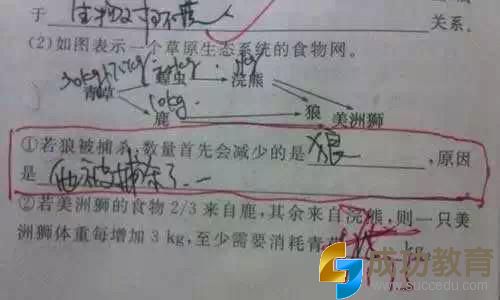 于 生物对环境 关系.
(2)如图表示一个草原生态系统的食物网。
30kg 10kg
青草 蝗虫 浣熊
10kg
鹿 狼 美洲狮
①若狼被捕杀,数量首先会减少的是 狼 ,原因
是 他被捕杀了..
②若美洲狮的食物 2/3 来自鹿,其余来自浣熊,则一只美
洲狮体重每增加 3 kg,至少需要消耗青草 kg
成功教育
www.succedu.com